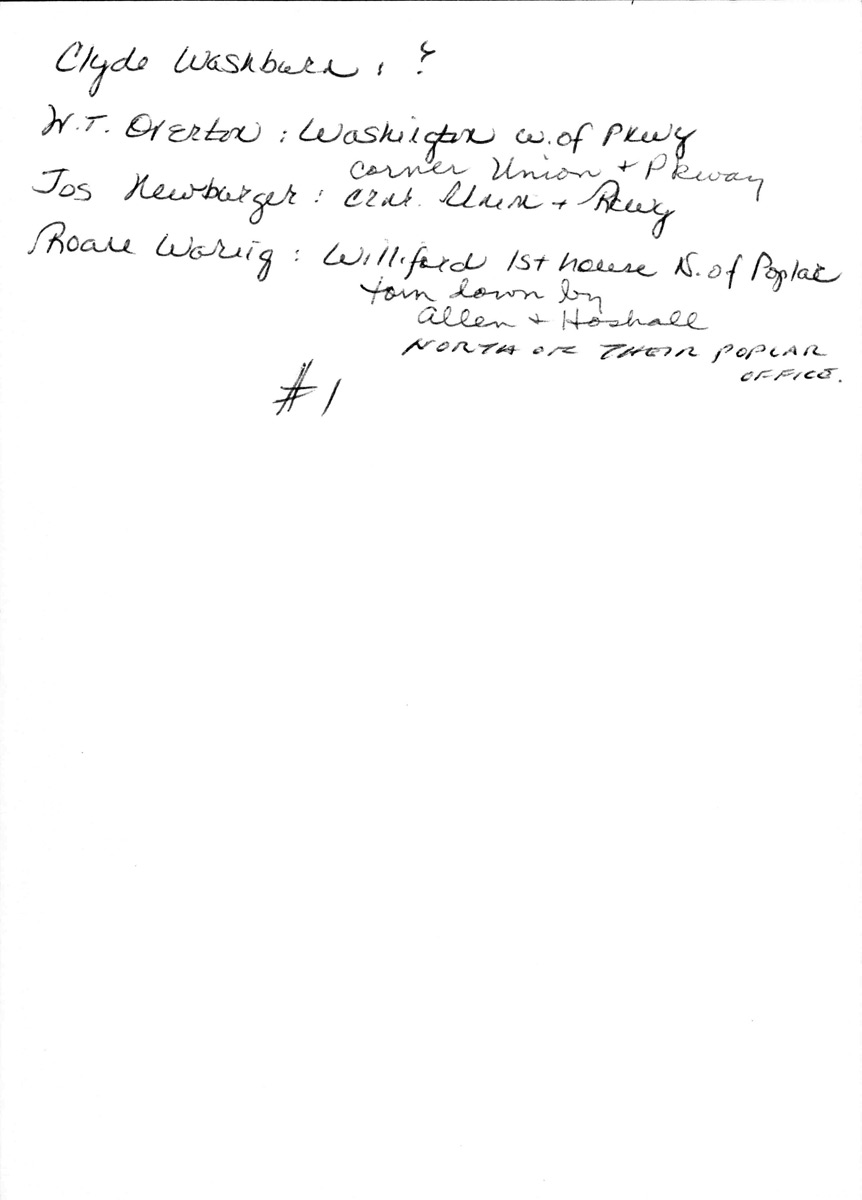 Clyde Washburn : ?
W.T. Overton : Washington W. of Pkwy
corner Union + Pkway
Jos Newburger : crnr. Union + Pkwy
Roane Waring : Williford 1st house N. of Poplar
torn down by
Allen + Hoshall
NORTH OF THEIR POPLAR
OFFICE.
#1